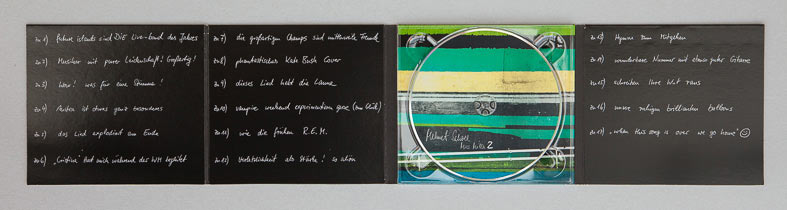 zu 1) future islands sind DIE Live-band des Jahres
zu 2) Musiker mit purer Leidenschaft! Großartig!
zu 3) Wow! was für eine Stimme!
zu 4) ist etwas ganz besonderes
zu 5) das Lied explodiert am Ende
zu 6) "Cristina" hat mich während der WM begleitet
zu 7) die großartigen Champs sind mittlerweile Freunde
zu 8) phantastischer Kate Bush Cover
zu 9) dieses Lied hebt die Laune
zu 10) vampire weekend experimentieren gerne (zum Glück)
zu 11) wie die frühen R.E.M.
zu 12) Verletzlichkeit als Stärke! so schön
Helmut
hits 2
zu 13) Hymne zum Mitgehen
zu 14) wunderbare Nummer mit etwas Gitarre
zu 15) schreien Ihre Wut raus
zu 16) unsere ruhigen brillianten
zu 17) "when this song is over we go home" ☺